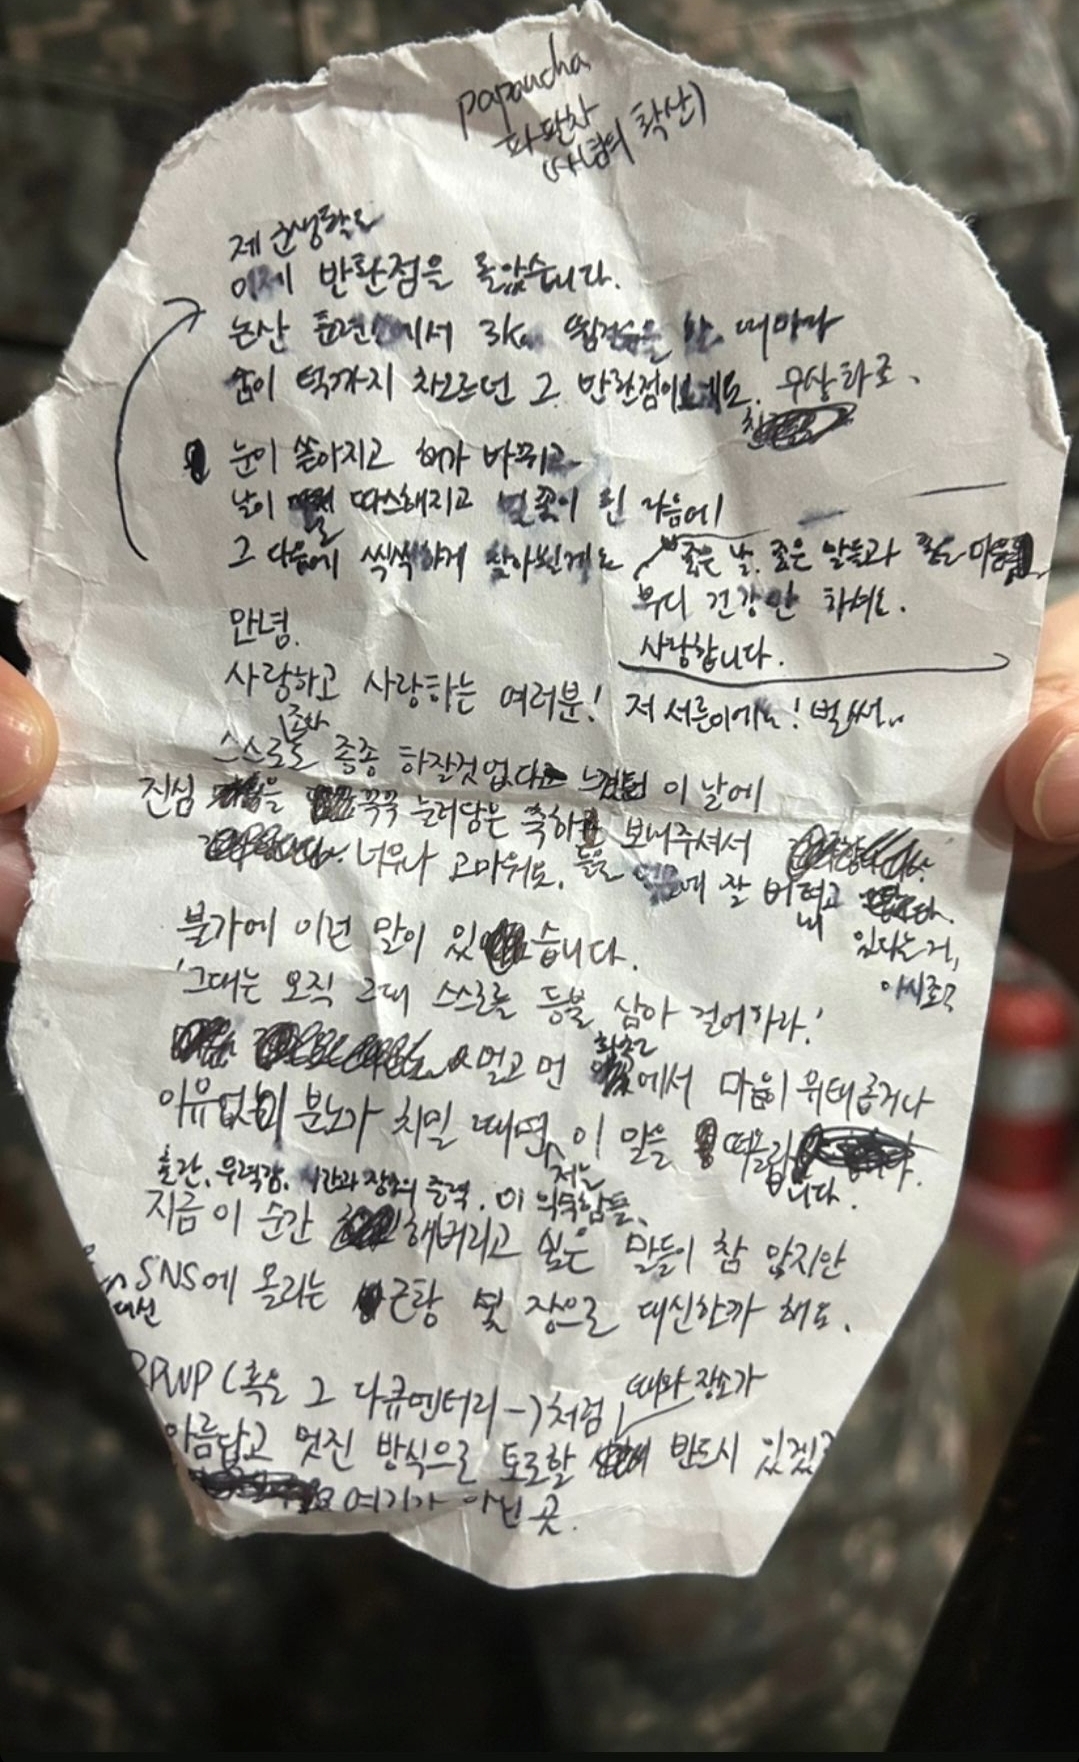 papancha
파판차
사념의 확산)
제 군생활도
이제 반환점을 돌았습니다.
논산 훈련소에서 3km 뜀걸음을 할 때마다
숨이 턱까지 차오르던 그 반환점이요.
눈이 쏟아지고 해가 바뀌고
날이 따스해지고 벚꽃이 핀 다음에
그 다음에 씩씩하게 찾아뵐게요
좋은 날, 좋은 말들과 좋은 마음
부디 건강만 하셔요.
사랑합니다.
안녕.
사랑하고 사랑하는 여러분! 저 서른이에요! 벌써..
조차
스스로도 종종 하잘것없다 느꼈던 이 날에
진심을 꾹꾹 눌러담은 축하 보내주셔서
너무나 고마워요. 잘 버텨
내고
있다는 거,
아시죠?
불가에 이런 말이 있습니다.
'그대는 오직 그대 스스로를 등불 삼아 걸어가라.'
멀고 먼 화천에서 마음이 위태롭거나
이유없이 분노가 치밀 때면, 저는 이 말을 떠올립니다.
출간, 무력감, 시간과 장소의 중력, 이 의욕함들,
지금 이 순간 해버리고 싶은 말들이 참 많지만
SNS에 올리는 근황 몇 장으로 대신할까 해요.
대신
RPWP (혹은 그 다큐멘터리-)처럼 때와 장소가
아름답고 멋진 방식으로 토로할 반드시 있겠죠
여기가 아닌 곳.